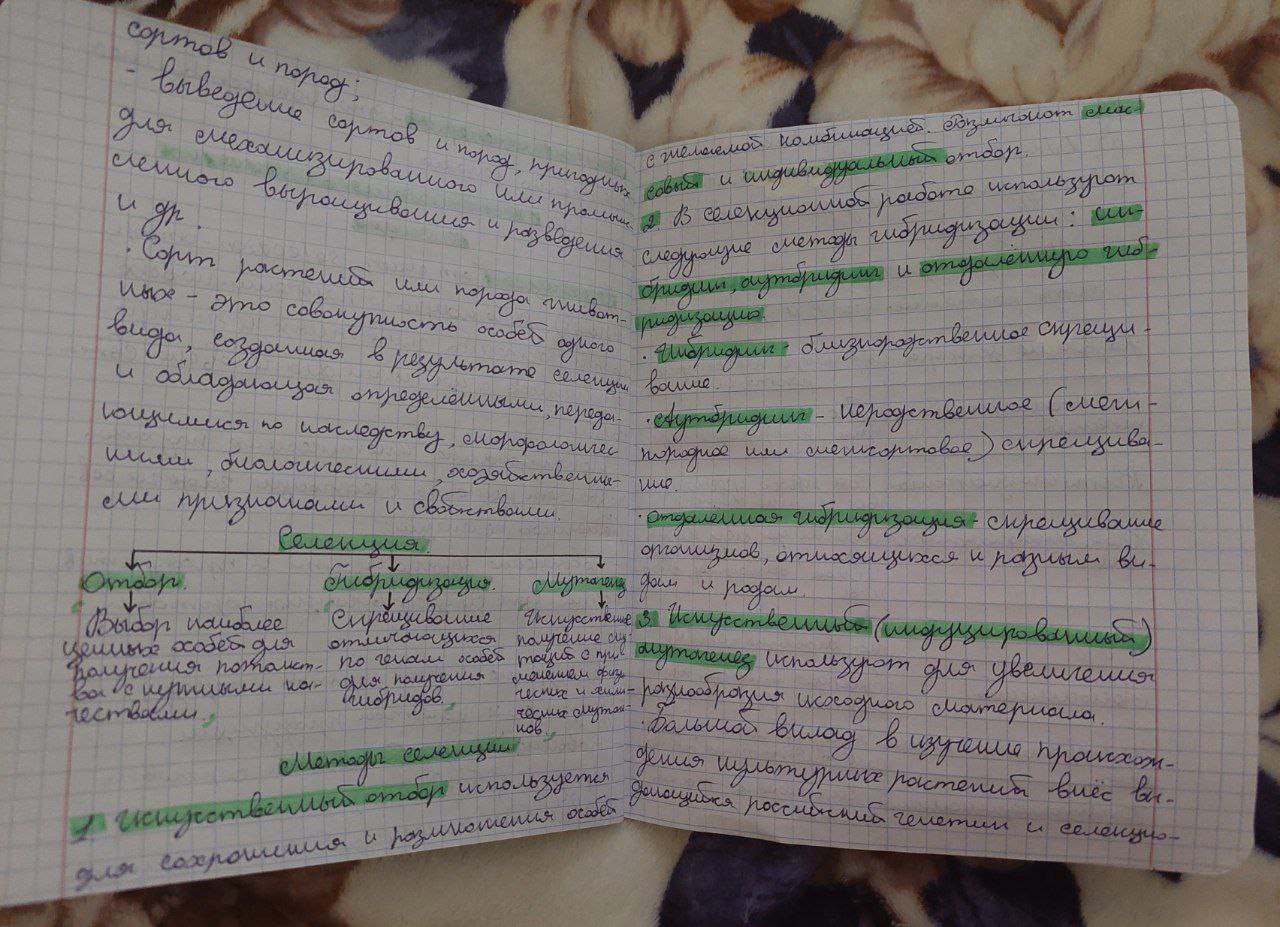 сортов и пород;
- выведение сортов и пород, пригодных
для механизированного или промыш-
ленного выращивания и разведения
и др.
· Сорт растений или порода живот-
ных - это совокупность особей одного
вида, созданная в результате селекции
и обладающая определёнными, переда-
ющимися по наследству, морфологичес-
кими, биологическими, хозяйственны-
ми признаками и свойствами.
Селекция
Отбор. Гибридизация. Мутагенез
Выбор наиболее
ценных особей для
получения потомст-
ва с нужными ка-
чествами.
Скрещивание
отличающихся
по генам особей
для получения
гибридов.
Искусственное
получение му-
таций с при-
менением физи-
ческих и хими-
ческих мутаге-
нов.
Методы селекции
1. Искусственный отбор используется
для сохранения и размножения особей
с желаемой комбинацией. Различают мас-
совый и индивидуальный отбор.
2. В селекционной работе используют
следующие методы гибридизации: ин-
бридинг, аутбридинг и отдалённую гиб-
ридизацию.
· Инбридинг - близкородственное скрещи-
вание.
· Аутбридинг - неродственное (меж-
породное или межсортовое) скрещива-
ние.
· Отдалённая гибридизация - скрещивание
организмов, относящихся к разным ви-
дам и родам.
3. Искусственный (индуцированный)
мутагенез используют для увеличения
разнообразия исходного материала.
· Большой вклад в изучение происхож-
дения культурных растений внёс вы-
дающийся российский генетик и селекцио-